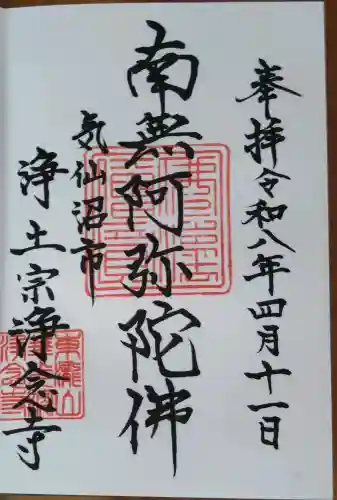 奉拝令和八年四月十一日
南無阿弥陀佛
気仙沼市
浄土宗浄念寺